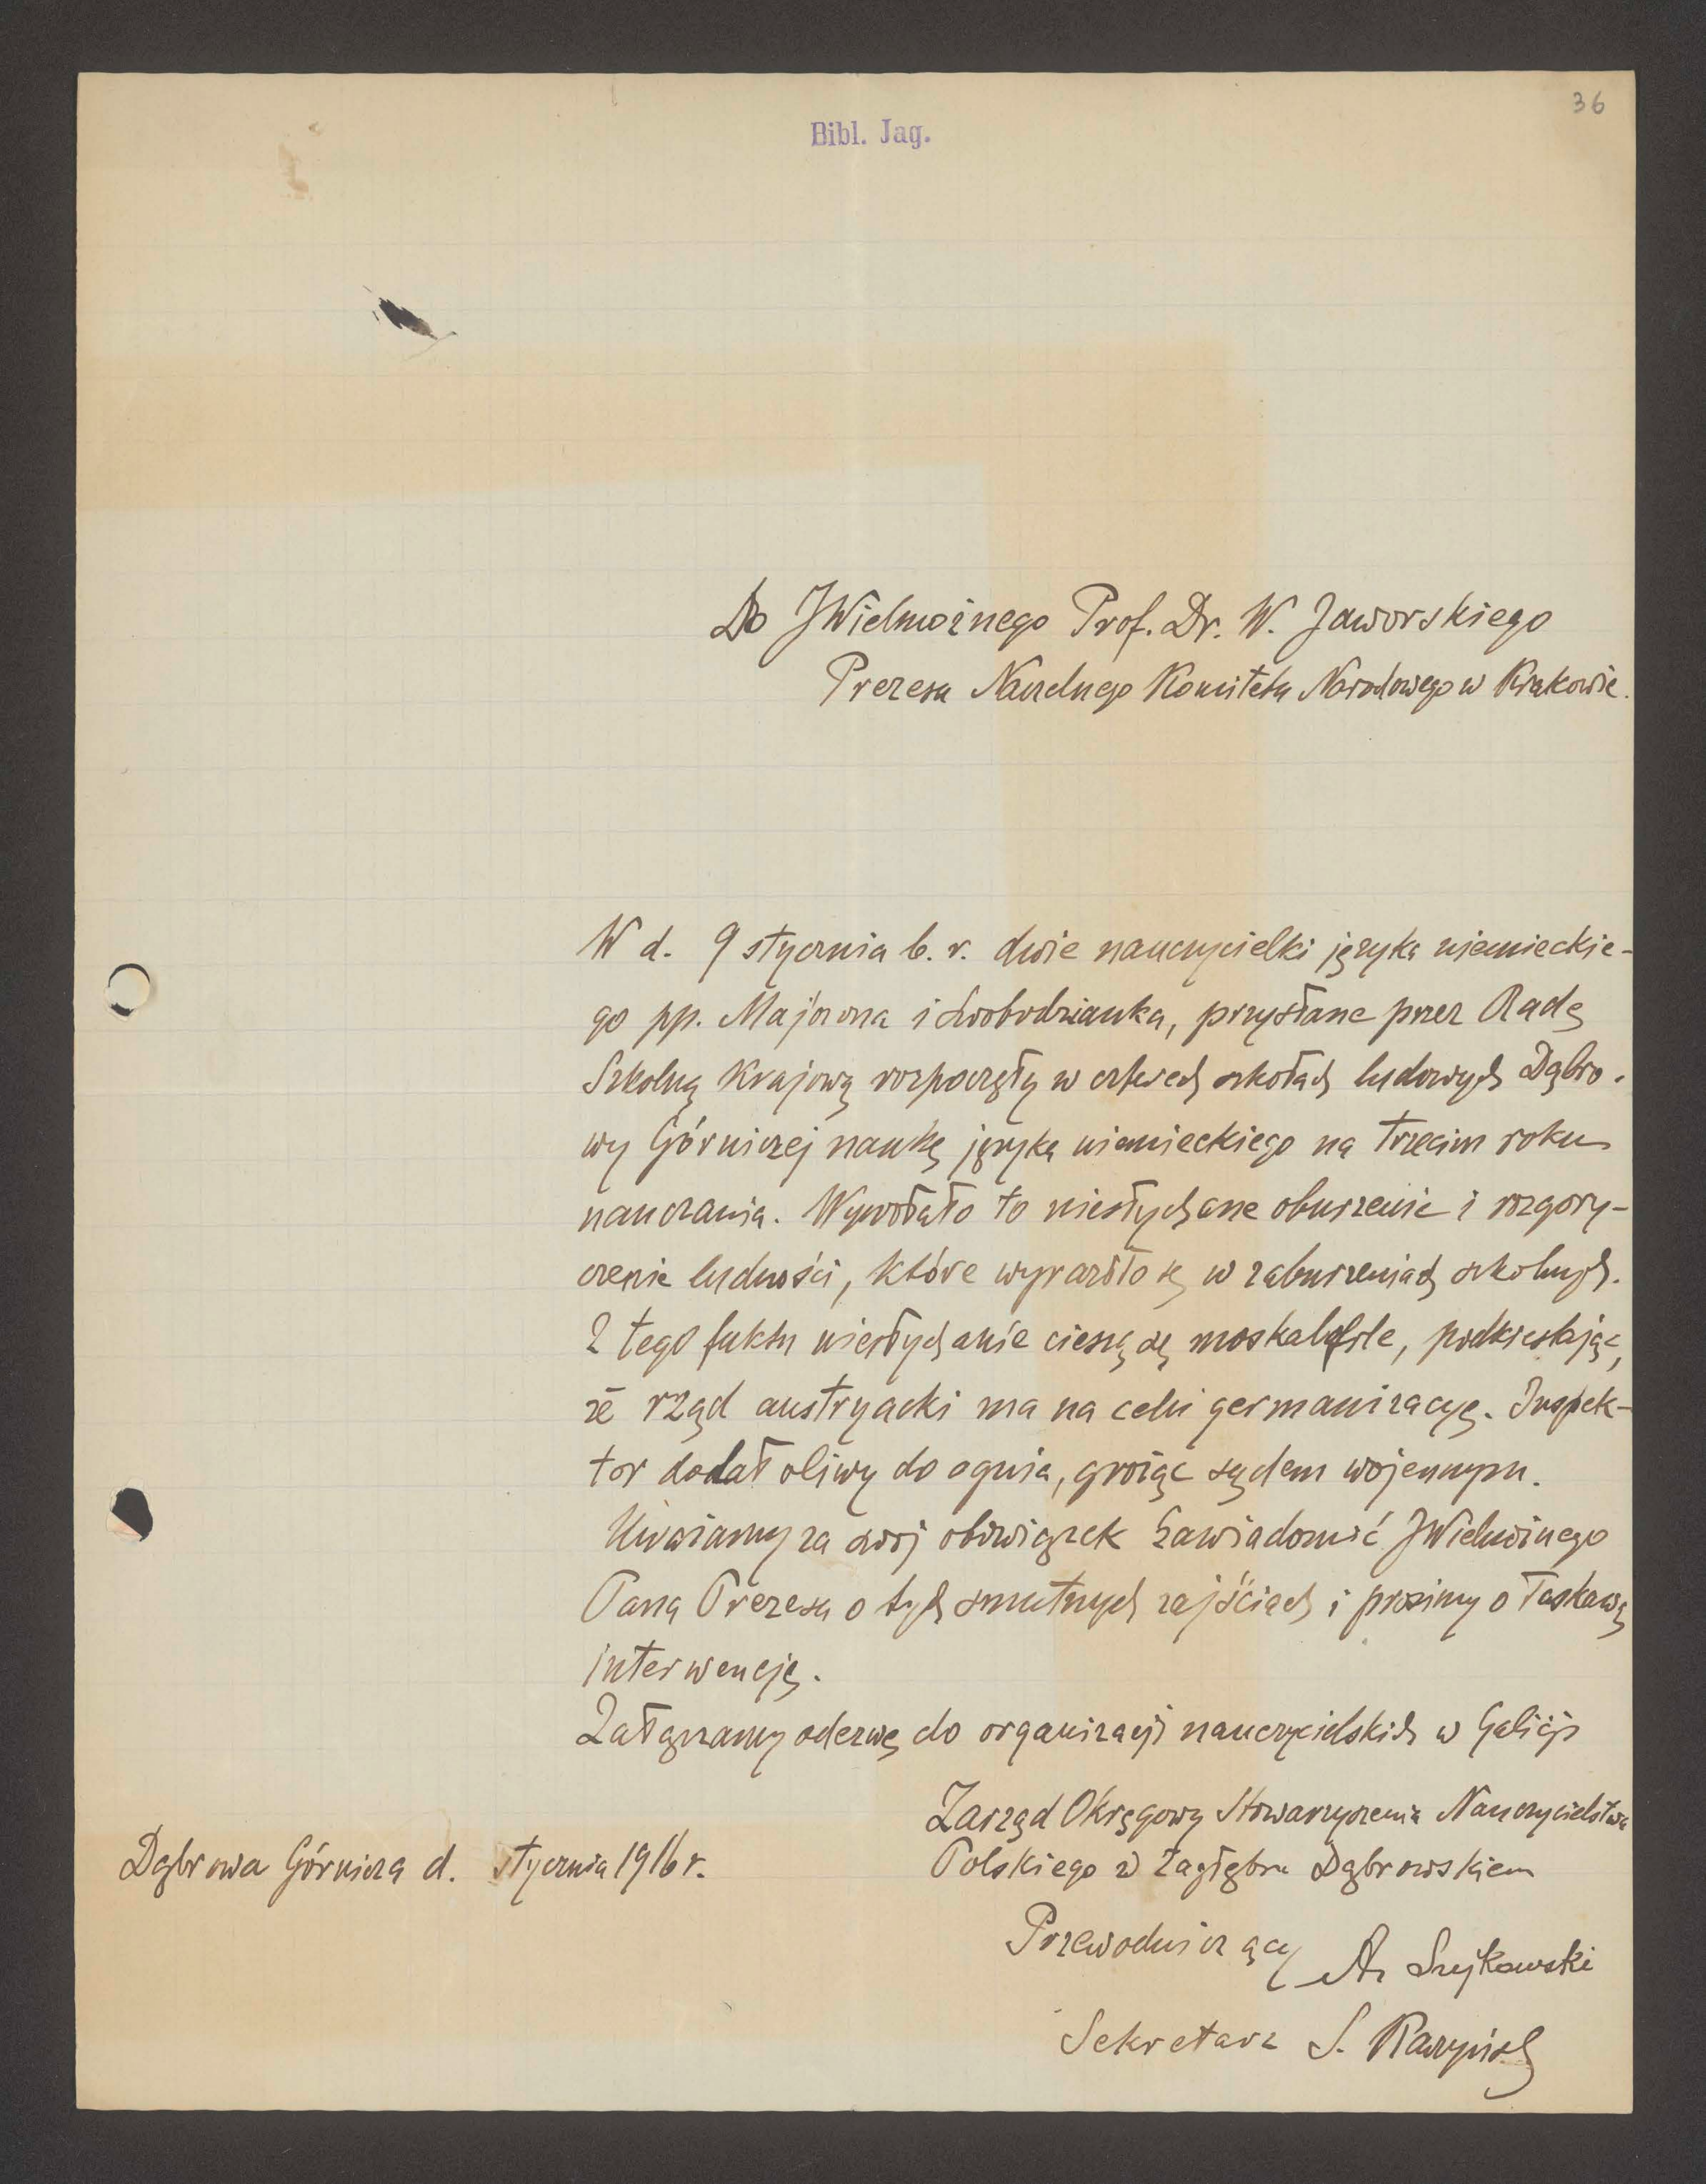 36
Bibl. Jag.
Do JWielmożnego Prof. Dr. W. Jaworskiego
Prezesa Naczelnego Komitetu Narodowego w Krakowie.
W d. 9 stycznia b. r. dwie nauczycielki języka niemieckie-
go pp. Majorowna i Swobodzianka, przysłane przez Radę
Szkolną Krajową rozpoczęły w czterech szkołach ludowych Dąbro-
wy Górniczej naukę języka niemieckiego na trzecim roku
nauczania. Wywołało to niesłychane oburzenie i rozgory-
czenie ludności, które wyraziło się w zaburzeniach szkolnych.
Z tego faktu niesłychanie cieszą się moskalofile, podkreślając,
że rząd austryacki ma na celu germanizacyę. Inspek-
tor dodał oliwy do ognia, grożąc sądem wojennym.
Uważamy za swój obowiązek zawiadomić JWielmożnego
Pana Prezesa o tych smutnych zajściach i prosimy o łaskawą
interwencję.
Załączamy odezwę do organizacji nauczycielskich w Galicji
Zarząd Okręgowy Stowarzyszenia Nauczycielstwa
Polskiego w Zagłębiu Dąbrowskiem
Dąbrowa Górnicza d. stycznia 1916 r.
Przewodniczący Szykowski
Sekretarz S.